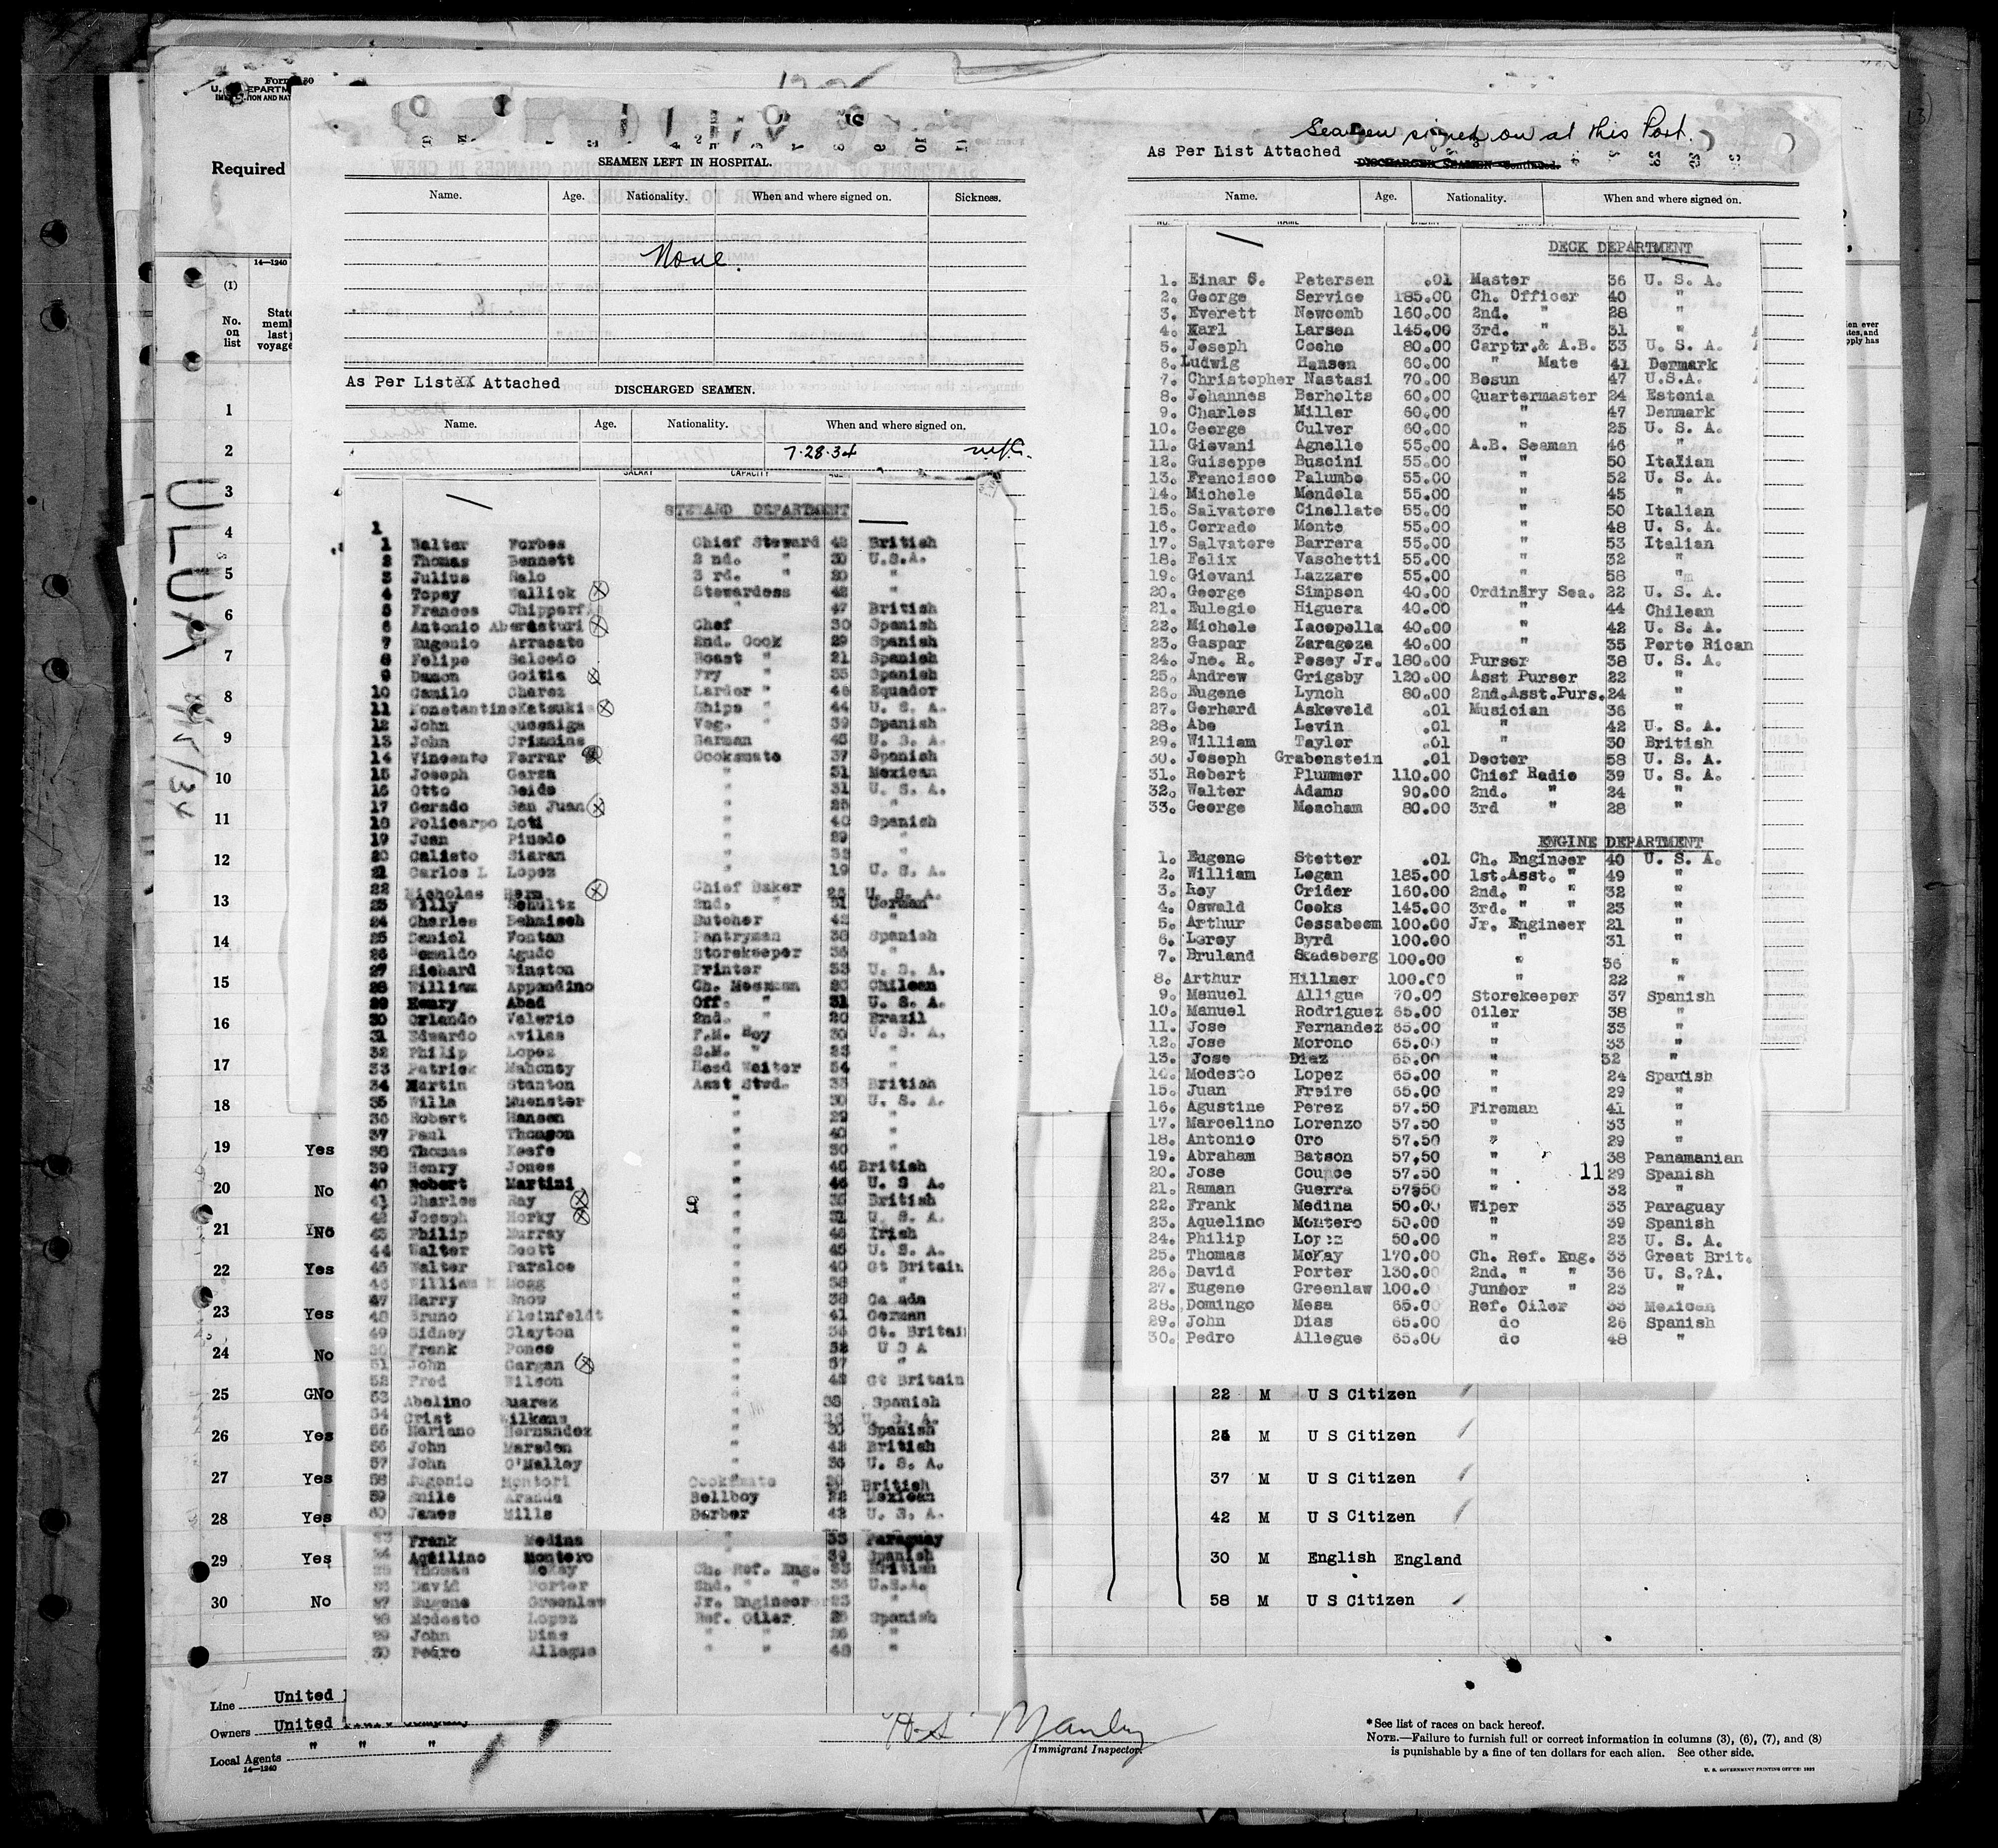 Required
(1)
No.
on
list
14—1240
ULUA
SEAMEN LEFT IN HOSPITAL.
Name. Age. Nationality. When and where signed on. Sickness.
None.
As Per List Attached
DISCHARGED SEAMEN.
Name. Age. Nationality. When and where signed on.
7-28-34
SALARY CAPACITY
STEWARD DEPARTMENT
1
1 Walter Forbes Chief Steward 42 British
2 Thomas Bennett 2 nd. " 30 U.S.A.
3 Julius 3 rd. " 20 "
4 Topsy Wallick Stewardess 42 "
5 Frances " 47 British
6 Antonio Aberasturi Chef 30 Spanish
7 Eugenio Arrasate 2nd. Cook 29 Spanish
8 Felipe Salcedo Roast " 21 Spanish
9 Damon Goitia Fry " 35 Spanish
10 Camilo Larder " 46 Equador
11 Konstantine Katsukis Ships " 44 U. S. A.
12 John Veg. " 39 Spanish
13 John Crimmins 45 U. S. A.
14 Vincente Ferrar Cooksmate 37 Spanish
15 Joseph Garza " 31 Mexican
16 Otto Seide " 31 U. S. A.
17 Gerado San Juan " 25 "
18 Policarpo Loti " 40 Spanish
19 Juan Pinedo " 29 "
20 Calisto Siaran " "
21 Carlos L Lopez " 19 U. S. A.
22 Nicholas Chief Baker U. S. A.
23 Willy Schultz 2nd. " 31 German
24 Charles Behnisch Butcher 42 "
25 Daniel Fontan Pantryman 38 Spanish
26 Agudo Storekeeper 36 "
27 Richard Winston Printer 53 U. S. A.
28 William Appandino Ch. Messman 20 Chilean
29 Henry Abad Off. " 31 U. S. A.
30 Orlando Valerio 2nd. " 20 Brazil
31 Edwardo Avilas P.M. Boy 30 U. S. A.
32 Philip Lopez S.M. " 23 "
33 Patrick Mahoney Head Waiter 54 "
34 Martin Stanton Asst Stwd. 35 British
35 Willa Muenster " 30 U. S. A.
36 Robert Hansen " 29 "
37 Paul Thomson " 40 "
38 Thomas Keefe " 30 "
39 Henry Jones " 45 British
40 Robert Martini " 46 U. S A.
41 Charles Ray " British
42 Joseph Horky " 31 U. S. A.
43 Philip Murray " 46 Irish
44 Walter Scott " 45 U. S. A.
45 Walter Parsloe " 40 Gt Britain
46 William " 38 "
47 Harry Snow " 38 Ca ada
48 Bruno Kleinfeldt " 41 German
49 Sidney Clayton " 36 Gt. Britain
50 Frank Ponce " 32 U S A
51 John Gargan " 37 "
52 Fred Wilson " 42 Gt Britain
53 Abelino Suarez " 38 Spanish
54 Crist Wilkens " U. S. A.
55 Mariano Hernandez " 30 Spanish
56 John Marsden " 42 British
57 John O'Malley " 36 U. S. A.
58 Eugenio Montori Cooksmate 20 British
59 Emile Aranda Bellboy 22 Mexican
60 James Mills Barber 42 U. S. A.
Frank Medina " 33 Paraguay
24 Aquilino Montero " 39 Spanish
25 Thomas McKay Ch. Ref. Eng. 33 British
26 David Porter 2nd. " " 36 U.S.A.
27 Eugene Greenlaw Jr. Engineer 23 "
28 Modesto Lopez Ref. Oiler 25 Spanish
29 John Dias " " 26 "
30 Pedro Allegue " " 48 "
Seamen signed on at this Port.
As Per List Attached
DISCHARGED SEAMEN—Continued.
Name. Age. Nationality. When and where signed on.
DECK DEPARTMENT
1. Einar S. Petersen .01 Master 36 U. S. A.
2. George Service 185.00 Ch. Officer 40 "
3. Everett Newcomb 160.00 2nd. " 28 "
4. Karl Larsen 145.00 3rd. " 31 "
5. Joseph Coshe 80.00 Carptr.& A.B. 33 U. S. A.
6. Ludwig Hansen 60.00 " Mate 41 Denmark
7. Christopher Nastasi 70.00 Bosun 47 U.S.A.
8. Johannes Berholts 60.00 Quartermaster 24 Estonia
9. Charles Miller 60.00 " 47 Denmark
10. George Culver 60.00 " 25 U. S. A.
11. Giovani Agnelle 55.00 A.B. Seaman 46 "
12. Guiseppe Buscini 55.00 " 50 Italian
13. Francisco Palumbo 55.00 " 52 U. S. A.
14. Michele Mendola 55.00 " 45 "
15. Salvatore Cinellate 55.00 " 50 Italian
16. Corrado Monte 55.00 " 48 U. S. A.
17. Salvatore Barrera 55.00 " 53 Italian
18. Felix Vaschetti 55.00 " 32 "
19. Giovani Lazzare 55.00 " 58 "
20. George Simpson 40.00 Ordinary Sea. 22 U. S. A.
21. Eulogio Higuera 40.00 " 44 Chilean
22. Michele Iacopella 40.00 " 42 U. S. A.
23. Gaspar Zaragoza 40.00 " 35 Porto Rican
24. Jno. R. Posey Jr. 180.00 Purser 38 U. S. A.
25. Andrew Grigsby 120.00 Asst Purser 22 "
26. Eugene Lynch 80.00 2nd.Asst.Purs. 24 "
27. Gerhard Askeveld .01 Musician 36 "
28. Abe Levin .01 " 42 U. S. A.
29. William Taylor .01 " 30 British
30. Joseph Grabenstein .01 Doctor 58 U. S. A.
31. Robert Plummer 110.00 Chief Radio 39 U. S. A.
32. Walter Adams 90.00 2nd. " 24 "
33. George Meacham 80.00 3rd " 28 "
ENGINE DEPARTMENT
1. Eugene Stetter .01 Ch. Engineer 40 U. S. A.
2. William Logan 185.00 1st.Asst. " 49 "
3. Roy Crider 160.00 2nd. " " 32 "
4. Oswald Cooks 145.00 3rd. " " 23 "
5. Arthur Cossaboom 100.00 Jr. Engineer 21 "
6. Leroy Byrd 100.00 " 31 "
7. Bruland Skadeberg 100.00 " 36 "
8. Arthur Hillmer 100.00 " 22 "
9. Manuel Alligue 70.00 Storekeeper 37 Spanish
10. Manuel Rodriguez 65.00 Oiler 38 "
11. Jose Fernandez 65.00 " 33 "
12. Jose Morono 65.00 " 33 "
13. Jose Diaz 65.00 " 32 "
14. Modesto Lopez 65.00 " 24 Spanish
15. Juan Freire 65.00 " 29 "
16. Agustine Perez 57.50 Fireman 41 "
17. Marcelino Lorenzo 57.50 " 33 "
18. Antonio Oro 57.50 " 29 "
19. Abraham Batson 57,50 " 38 Panamanian
20. Jose Counce 57.50 " 11 29 Spanish
21. Raman Guerra 57550 " 32 "
22. Frank Medina 50.00 Wiper 33 Paraguay
23. Aquelino Montero 50.00 " 39 Spanish
24. Philip Lopez 50.00 " 23 U. S. A.
25. Thomas McKay 170.00 Ch. Ref. Eng. 33 Great Brit.
26. David Porter 130.00 2nd. " " 36 U. S.?A.
27. Eugene Greenlaw 100.0 Junior " 23 "
28. Domingo Mesa 65.00 Ref. Oiler 33 Mexican
29. John Dias 65.00 do 26 Spanish
30. Pedro Allegue 65.00 do 48 "
1
2
3
4
5
6
7
8
9
10
11
12
13
14
15
16
17
18
19 Yes
20 No
21 No
22 Yes
23 Yes
24 No
25 GNo 22 M U S Citizen
26 Yes 24 M U S Citizen
27 Yes 37 M U S Citizen
28 Yes 42 M U S Citizen
29 Yes 30 M English England
30 No 58 M U S Citizen
Line United
Owners United
Local Agents " " "
14—1240
H.S. Manley
Immigrant Inspector.
*See list of races on back hereof.
NOTE.—Failure to furnish full or correct information in columns (3), (6), (7), and (8)
is punishable by a fine of ten dollars for each alien. See other side.
U. S. GOVERNMENT PRINTING OFFICE: 1932